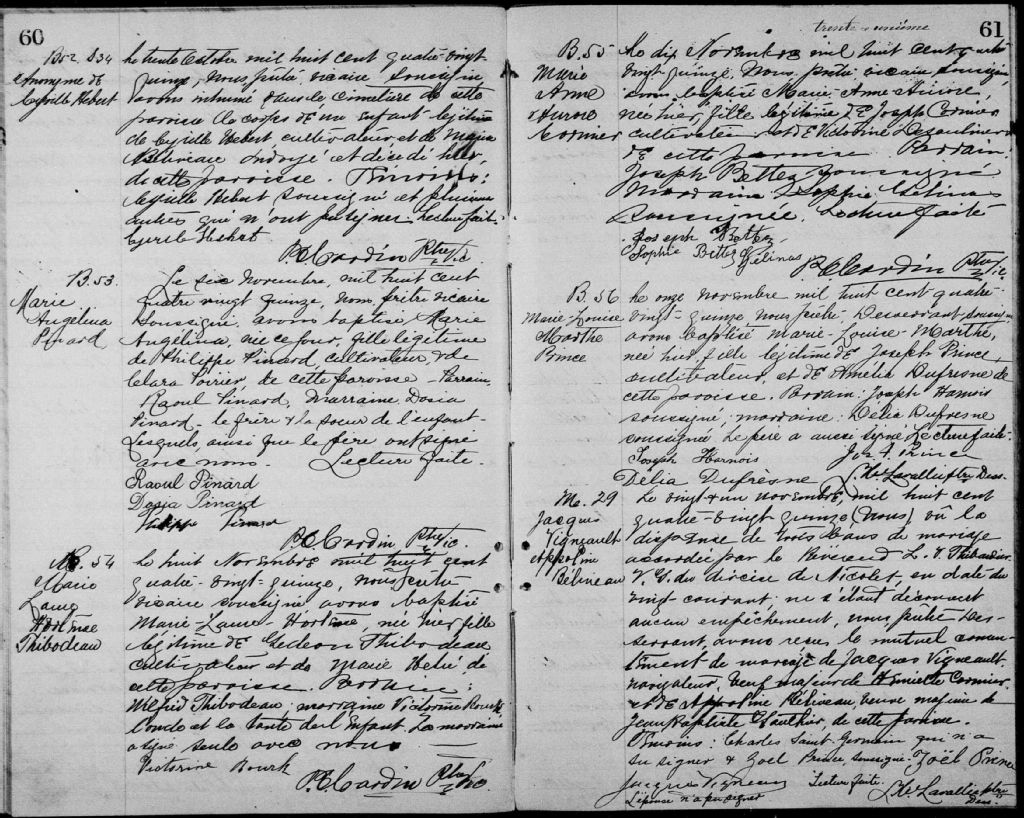 60
B52 S34
Anonyme de
Cyrille Hebert
Le trente Octobre mil huit cent quatre-vingt
quinze, nous prêtre vicaire soussigné,
avons inhumé dans le cimetière de cette
paroisse le corps de un enfant légitime
de Cyrille Hebert cultivateur, et de Marie
Béliveau ondoyé et décédé hier,
de cette paroisse. Témoins:
Cyrille Hebert soussigné et plusieurs
autres qui n'ont pu signer. Lecture faite.
Cyrile Hebert
P.E. Cardin Ptre Vic
B. 53.
Marie
Angelina
Pinard
Le six novembre, mil huit cent
quatre vingt quinze, nous, prêtre vicaire
soussigné, avons baptisé, Marie
Angelina, née ce jour, fille légitime
de Philippe Pinard, cultivateur, & de
Clara Poirier, de cette paroisse - Parrain,
Raoul Pinard, Marraine, Dosia
Pinard - le frère & la soeur de l'enfant -
Lesquels, aussi que le père ont signé
avec nous. Lecture faite.
Raoul Pinard
Dosia Pinard
Philippe Pinard
P.E. Cardin Ptre Vic.
B. 54
Marie
Laure
Hortense
Thibodeau
Le huit Novembre mil huit cent
quatre-vingt-quinze, nous prêtre
vicaire soussigné, avons baptisé
Marie-Laure-Hortense, née hier, fille
légitime de Gedeon Thibodeau
cultivateur et de Marie Hebert de
cette paroisse. Parrain:
Wilfrid Thibodeau, marraine Victorine Bourk
l'oncle et la tante de l'Enfant. La marraine
a signé seule avec nous.
Victorine Bourk
P.E. Cardin Ptre Vic.
trente & unième
61
B. 55
Marie
Anne
Aurore
Cormier
Le dix Novembre mil huit cent quatre
vingt-quinze, Nous, prêtre vicaire, soussigné,
avons baptisé Marie-Anne-Aurore,
née hier, fille légitime de Joseph Cormier
cultivateur et de Victorine Desaulniers
de cette paroisse. Parrain:
Joseph Bettez soussigné
Marraine Sophie Gélinas
soussignée. Lecture faite
Joseph Bettez
Sophie Bettez Gélinas
P.E. Cardin Ptre Vic
B. 56
Marie-Louise
Marthe
Prince
Le onze novembre mil huit cent quatre-
vingt-quinze nous prêtre Desservant soussigné
avons baptisé Marie-Louise-Marthe,
née hier, fille légitime de Joseph Prince,
cultivateur, et de Amelia Dufresne de
cette paroisse. Parrain: Joseph Harnois
soussigné, marraine: Délia Dufresne
soussignée. Le père a aussi signé. Lecture faite.
Joseph Harnois
Délia Dufresne
M. 29
Jacques
Vigneault
et
Appoline
Béliveau
Le vingt & un novembre, mil huit cent
quatre-vingt-quinze (nous) vû la
dispense de trois bans de mariage
accordée par le Révérend L. Thibaudier
V. G. du diocèse de Nicolet, en date du
vingt courant: ne s'étant découvert
aucun empêchement, nous, prêtre des-
servant, avons reçu le mutuel consen-
tement de mariage de Jacques Vigneault,
navigateur, veuf majeur de Cormier,
et de Appoline Béliveau, veuve majeure de
Jean Baptiste Gauthier, de cette paroisse.
Témoins: Charles Saint-Germain qui n'a
su signer & Joël Prince, soussigné. Joël Prince
Jacques Vigneau
Lecture faite.
L'épouse n'a pu signer